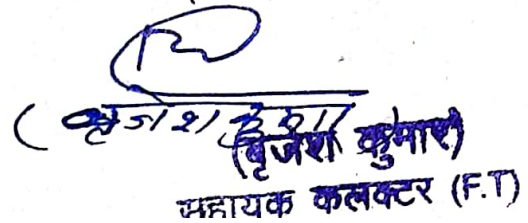 (बृजेश कुमार)
(बृजेश कुमार)
सहायक कलक्टर (F.T)